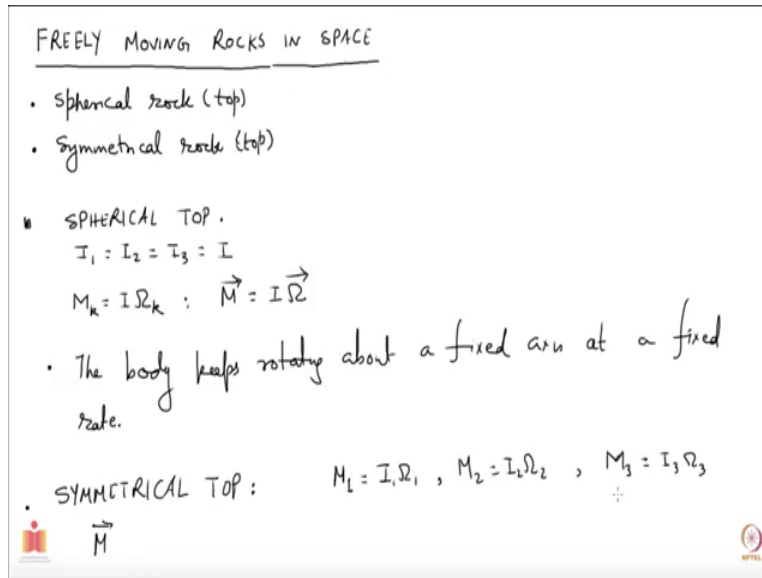 FREELY MOVING ROCKS IN SPACE
• Spherical rock (top)
• Symmetrical rock (top)
SPHERICAL TOP.
I₁ = I₂ = I₃ = I
Mₖ = IΩₖ : M⃗ = IΩ⃗
• The body keeps rotating about a fixed axis at a fixed
rate.
• SYMMETRICAL TOP : M₁ = I₁Ω₁ , M₂ = I₂Ω₂ , M₃ = I₃Ω₃
M⃗
NPTEL